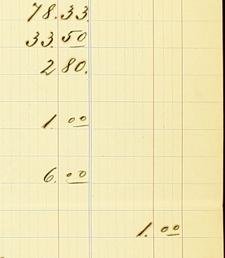 78.33.
33.50
2 80.
1.00
6.00
1.00